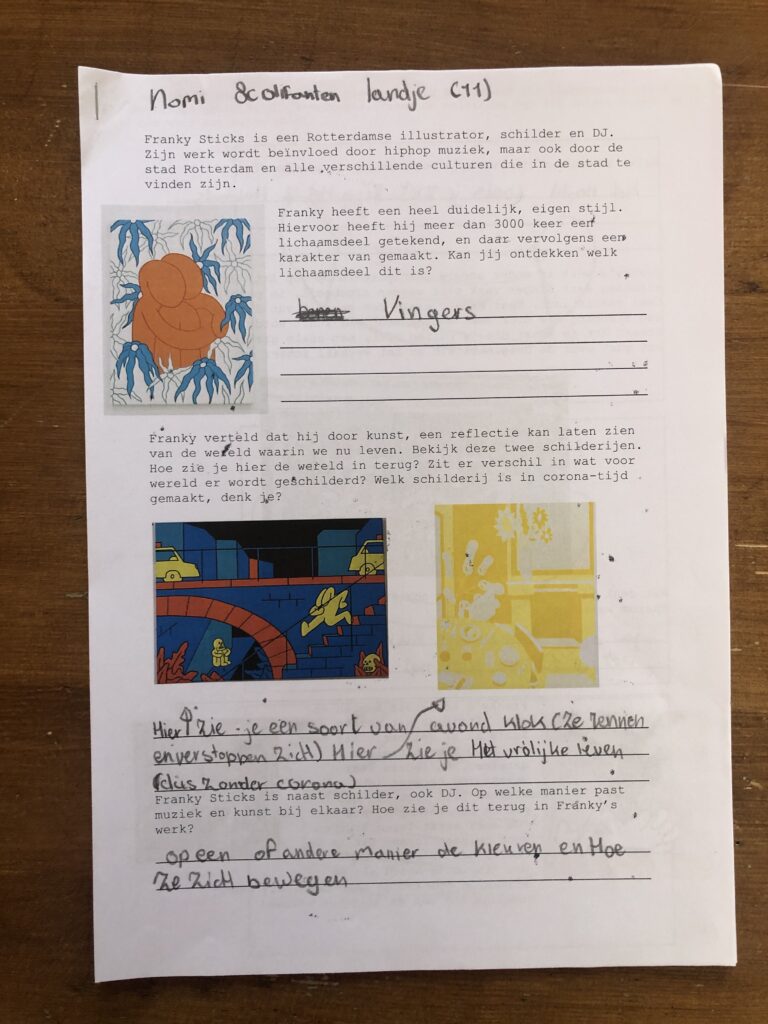 Nomi & olifanten landje (11)
Franky Sticks is een Rotterdamse illustrator, schilder en DJ.
Zijn werk wordt beïnvloed door hiphop muziek, maar ook door de
stad Rotterdam en alle verschillende culturen die in de stad te
vinden zijn.
Franky heeft een heel duidelijk, eigen stijl.
Hiervoor heeft hij meer dan 3000 keer een
lichaamsdeel getekend, en daar vervolgens een
karakter van gemaakt. Kan jij ontdekken welk
lichaamsdeel dit is?
benen Vingers
Franky verteld dat hij door kunst, een reflectie kan laten zien
van de wereld waarin we nu leven. Bekijk deze twee schilderijen.
Hoe zie je hier de wereld in terug? Zit er verschil in wat voor
wereld er wordt geschilderd? Welk schilderij is in corona-tijd
gemaakt, denk je?
Hier zie je een soort van avond klok (ze rennen
en verstoppen zich) Hier zie je Het vrolijke leven
(dus zonder corona)
Franky Sticks is naast schilder, ook DJ. Op welke manier past
muziek en kunst bij elkaar? Hoe zie je dit terug in Franky's
werk?
op een of andere manier de kleuren en Hoe
ze zich bewegen